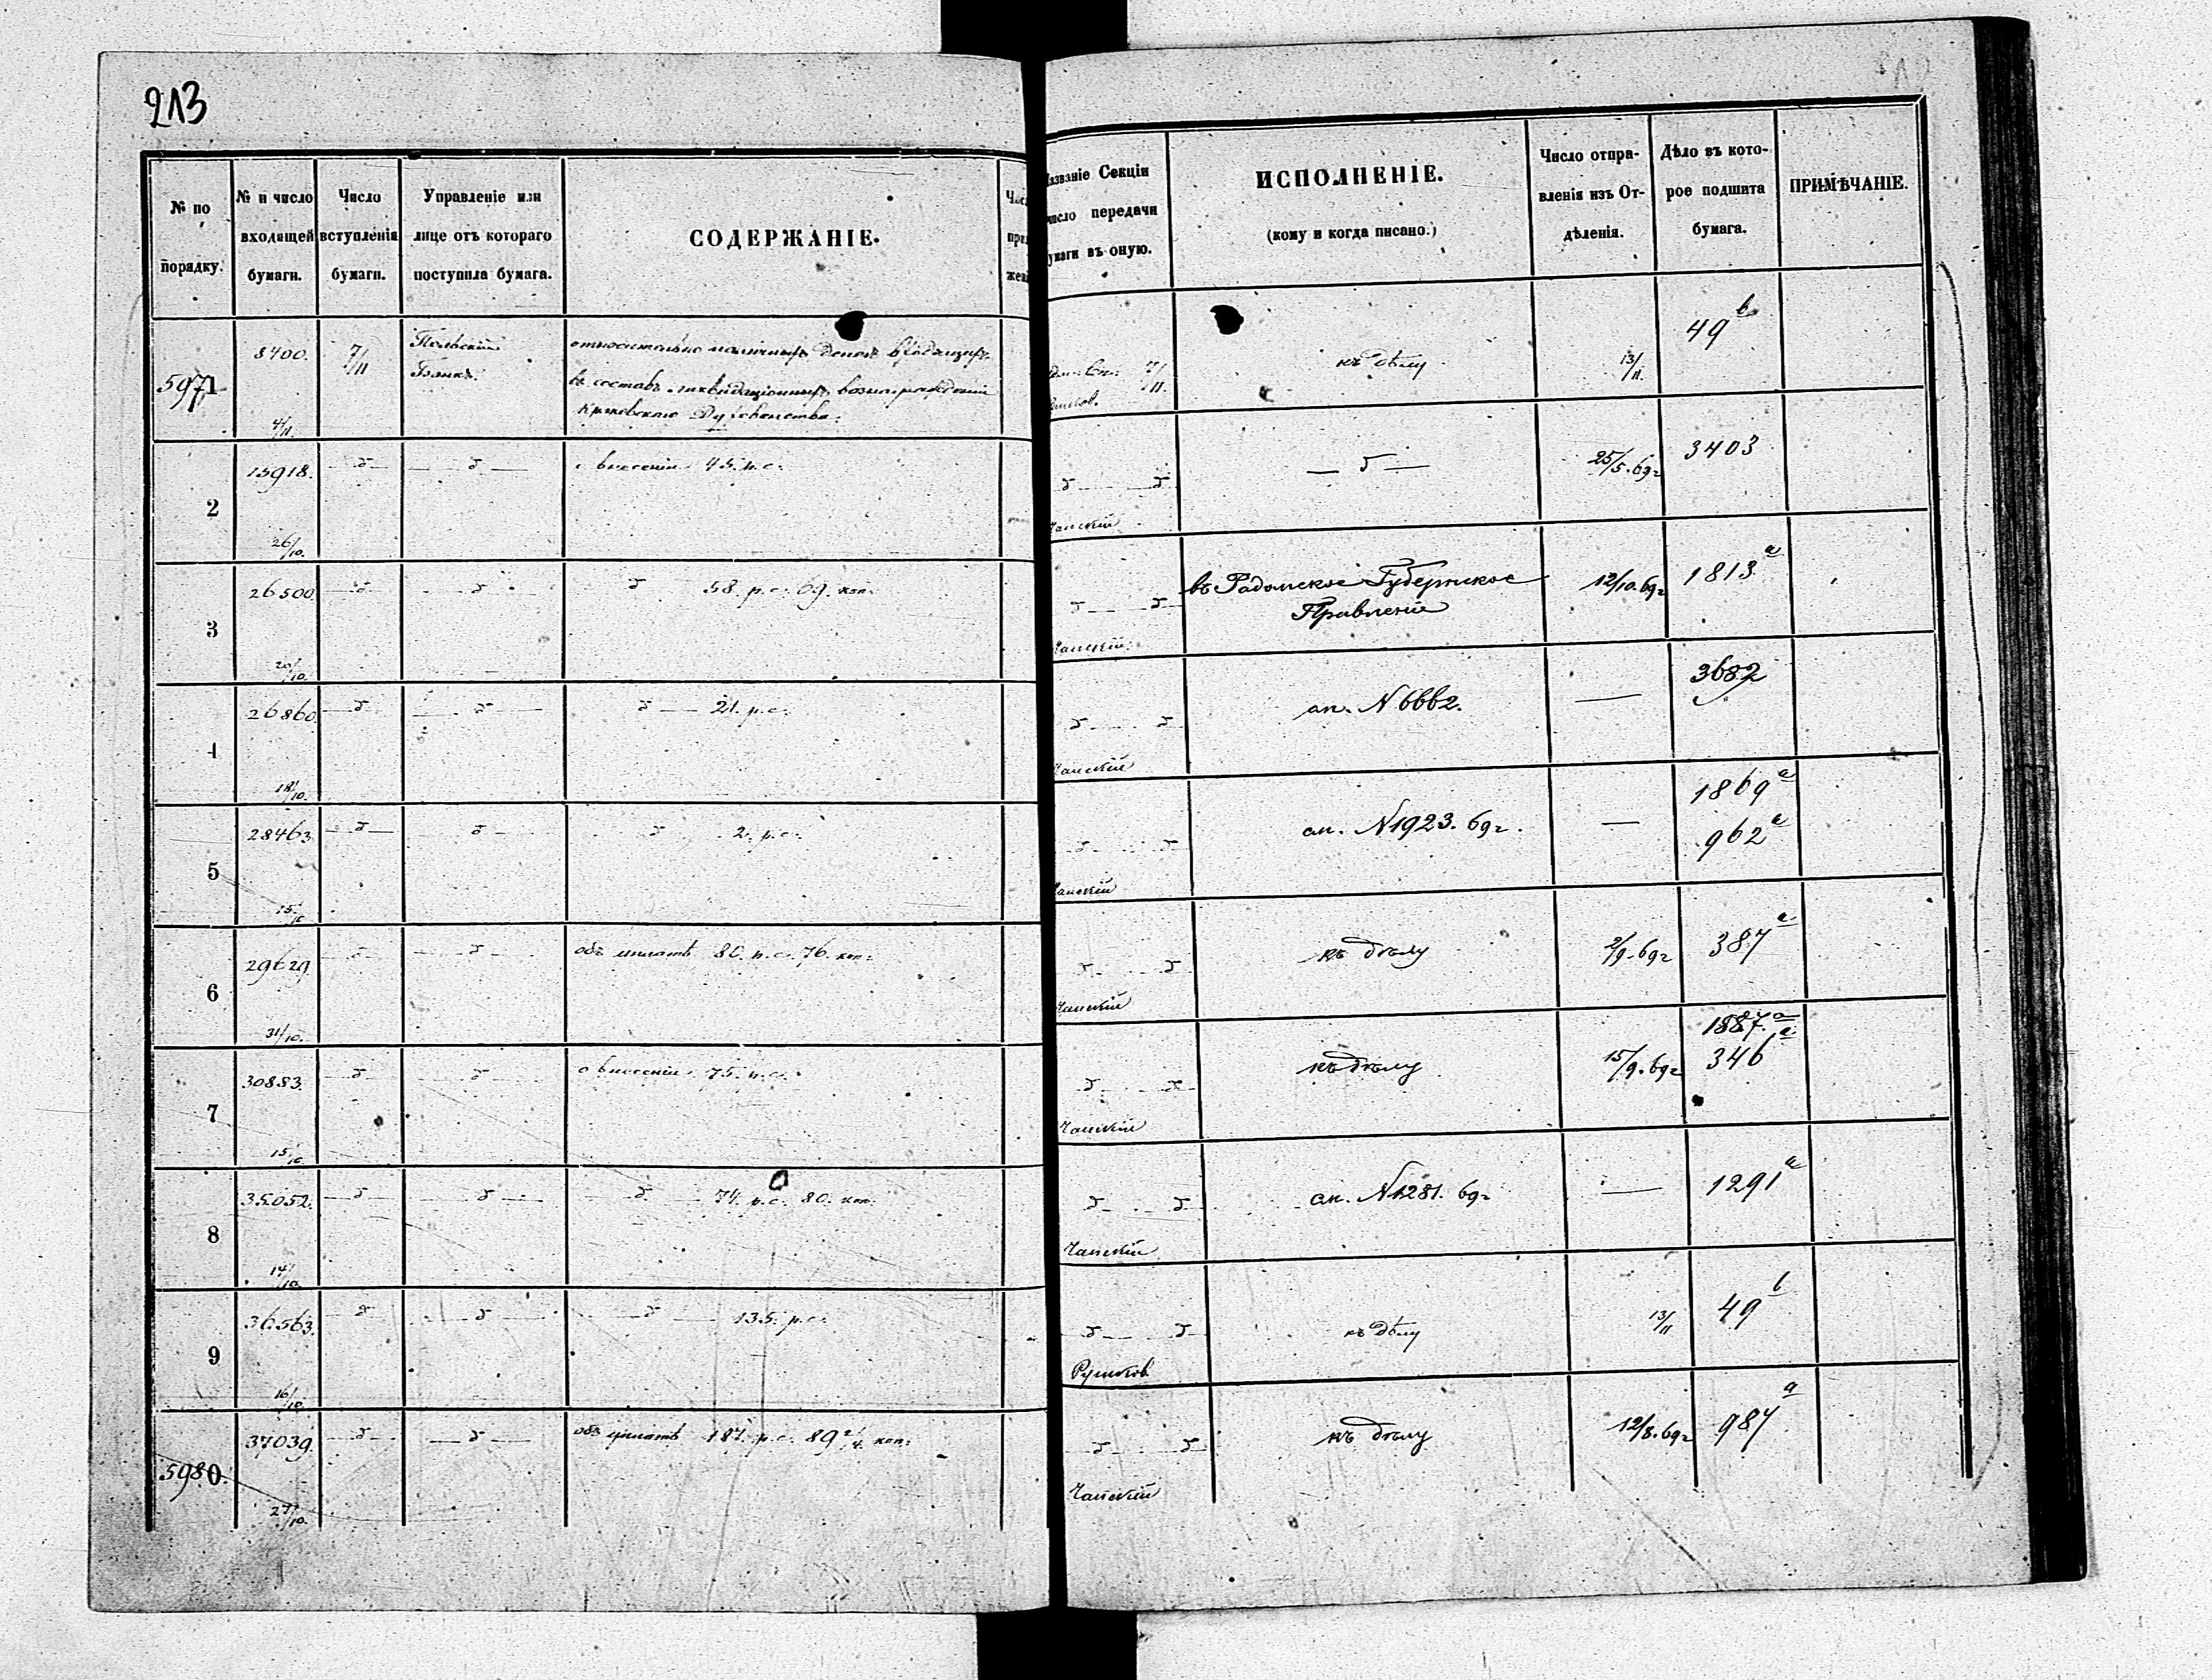 213
№ по порядку.
№ и число входящей бумаги.
Число вступленія бумаги.
Управленіе или лице отъ котораго поступила бумага.
СОДЕРЖАНІЕ.
Названіе Секціи число передачи бумаги въ оную.
ИСПОЛНЕНІЕ.
(кому и когда писано.)
Число отправленія изъ Отдѣленія.
Дѣло въ которое подшита бумага.
ПРИМѢЧАНІЕ.
5971 8400. 4/11. 7/11 Польскій Банкъ.
относительно наличныхъ денегъ входящихъ
въ составъ ликвидаціонныхъ вознагражденій
Духовенства.
7/11. къ дѣлу 13/11. 49 b
2 15918. 26/10. —δ— —δ— о внесеніи 45. р. с.
δ — δ Чапскій —δ— 25/5. 69 г 3403
3 26500. 20/10. —δ— —δ— δ 58. р. с. 69. коп.
δ — δ Чапскій въ Радомское Губернское
Правленіе 12/10. 69 г 1813 a
4 26860. 18/10. —δ— —δ— δ — 21. р. с.
δ — δ Чапскій ап. N 6662. — 3682
5 28463. 15/10 —δ— δ — δ 2. р. с.
δ — δ Чапскій ап. N 1923. 69 г. — 1869 a
962 a
6 29629. 31/10. —δ— —δ— объ уплатѣ 80. р. с. 76. коп.
δ — δ Чапскій къ дѣлу 2/9. 69 г 387 a
7 30883. 15/10 —δ— —δ— о внесеніи 75. р. с.
δ — δ Чапскій къ дѣлу 15/9. 69 г 1887. a
346 a
8 35052. 14/10. —δ— —δ— —δ— 74. р. с. 80. коп.
δ — δ Чапскій ап. N 1281. 69 г — 1291 a
9 36563. 16/10 —δ— —δ— —δ— 135. р. с.
δ — δ Рушков. къ дѣлу 13/11 49 b
5980. 37039. 27/10. —δ— —δ— объ уплатѣ 187. р. с. 89 2/4. коп.
δ — δ Чапскій къ дѣлу 12/8. 69 г 987 a